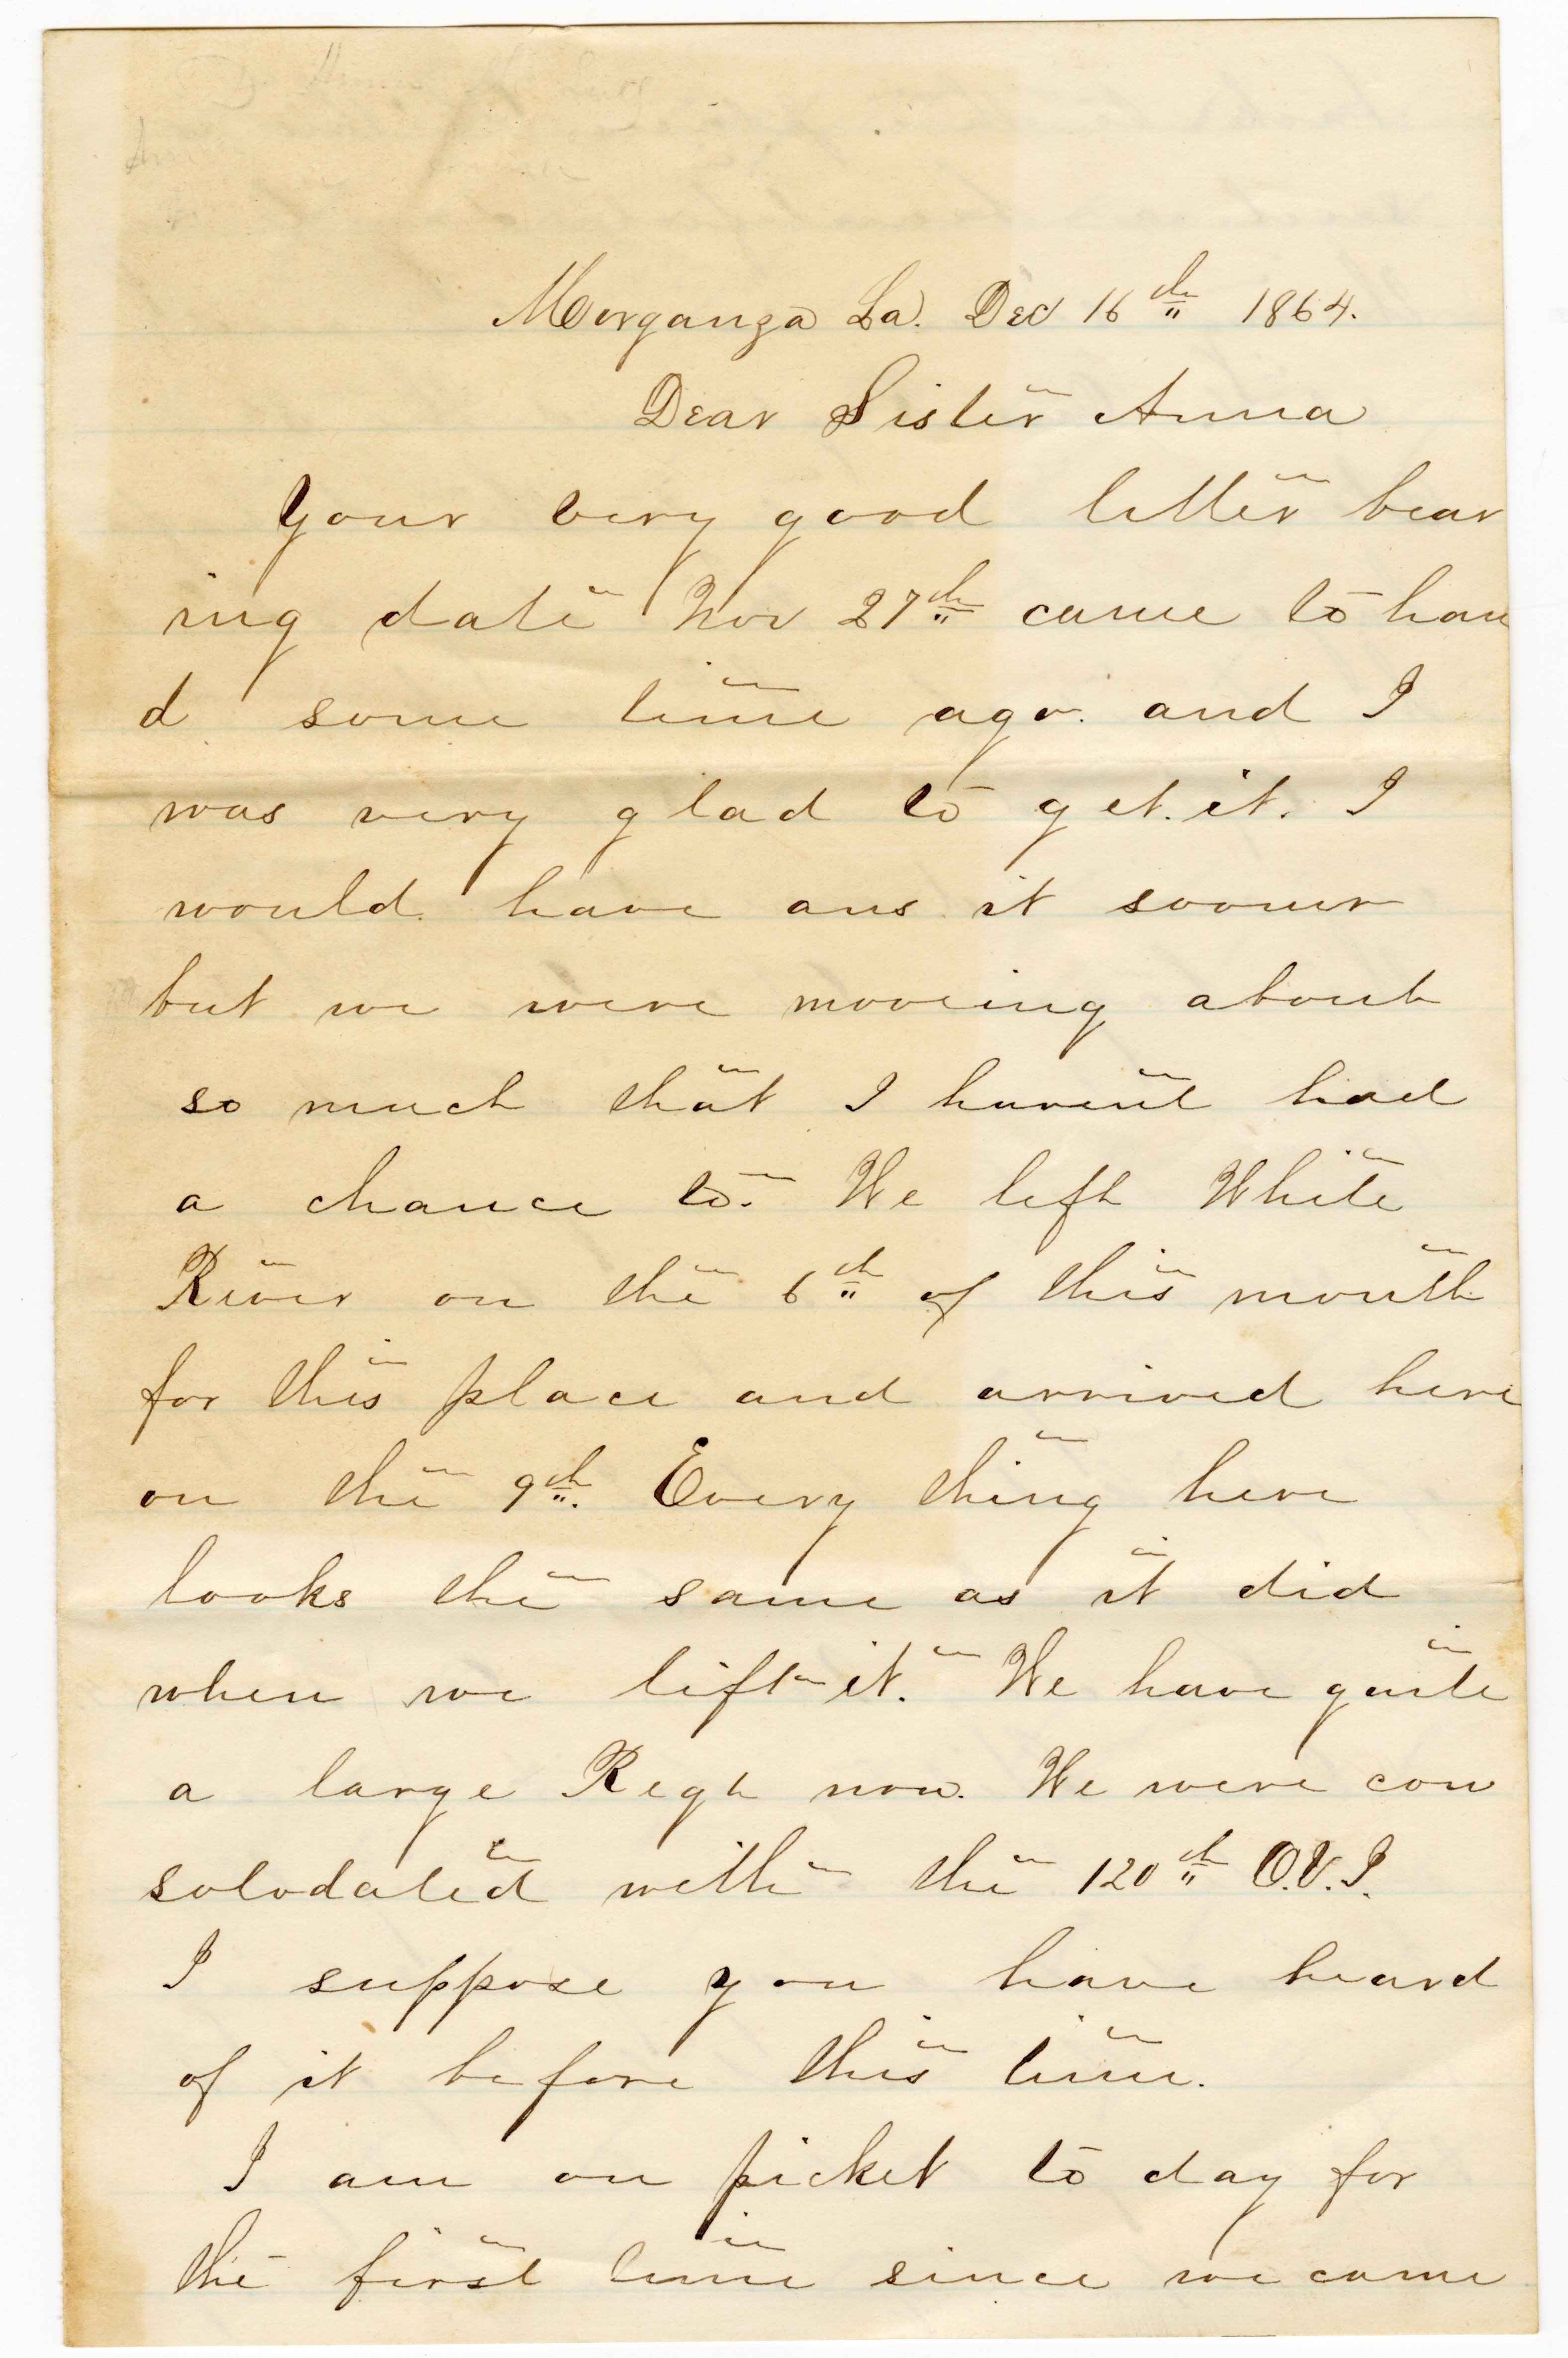 Morganza La. Dec 16th 1864.
Dear Sister Anna
Your very good letter bear
ing date Nov 27th came to han
d some time ago. and I
was very glad to get it. I
would have ans it sooner
but we were mooving about
so much that I havent had
a chance to. We left White
River on the 6th of this month
for this place and arrived here
on the 9th. Every thing here
looks the same as it did
when we left it. We have quite
a large Regt now. We were con
solodated with the 120th O.V.I.
I suppose you have heard
of it before this time.
I am on picket to day for
the first time since we came